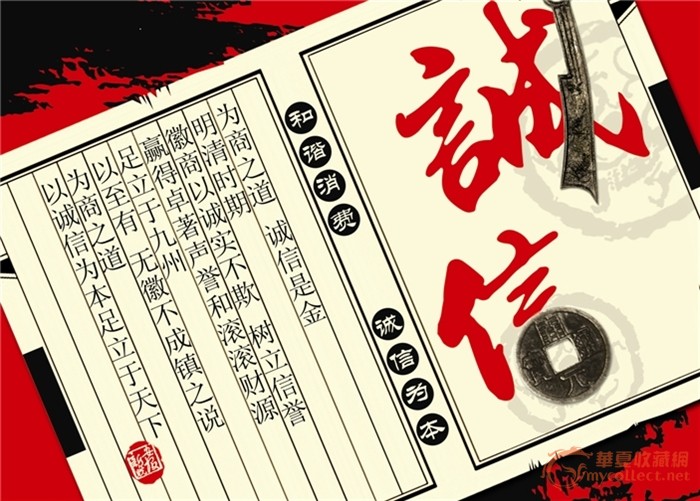 誠信
和谐消费
诚信为本
为商之道 诚信是金
明清时期
徽商以诚实不欺 树立信誉
赢得卓著声誉和滚滚财源
足立于九州
以至有 无徽不成镇之说
为商之道
以诚信为本足立于天下
華夏收藏網
mycollect.net